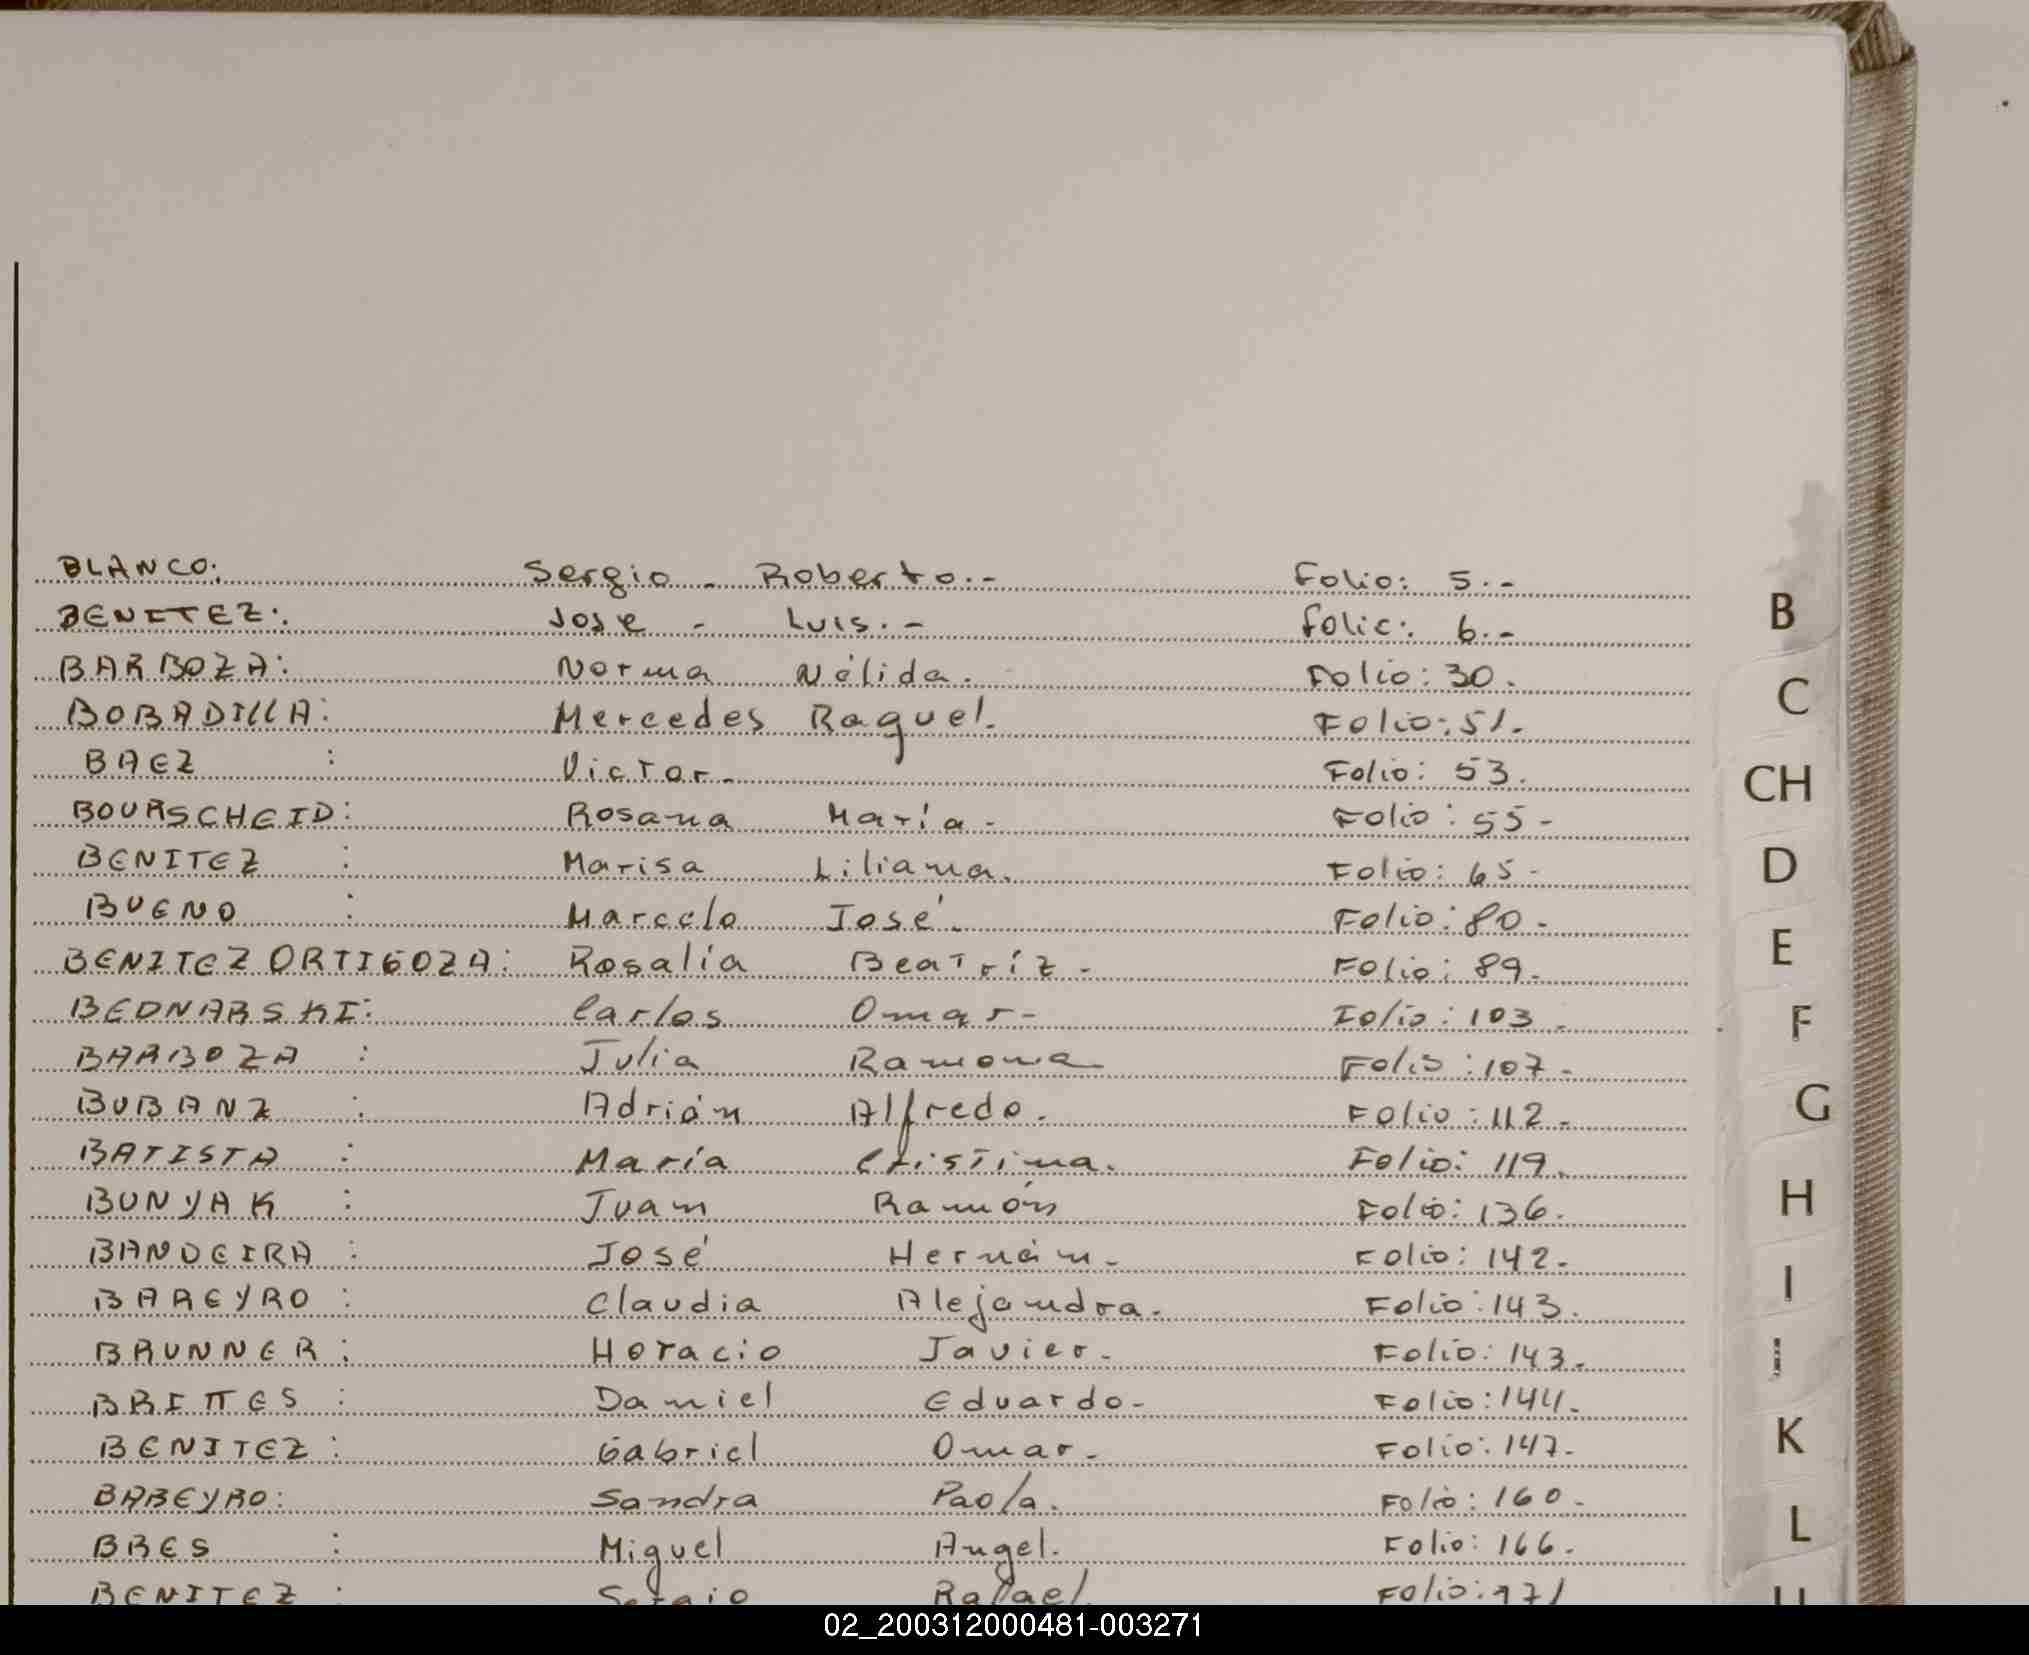 BLANCO: Sergio - Roberto.- Folio: 5.-
BENITEZ: Jose - Luis.- Folio: 6.-
BARBOZA: Norma Nélida. Folio: 30.
BOBADILLA: Mercedes Raquel. Folio: 51.
BAEZ : Victor. Folio: 53.
BOURSCHEID: Rosana María - Folio: 55-
BENITEZ : Marisa Liliana. Folio: 65-
BUENO : Marcelo José. Folio: 80.
BENITEZ ORTIGOZA: Rosalía Beatríz. Folio: 89.
BEDNARSKI: Carlos Omar- Folio: 103.
BARBOZA : Julia Ramona Folio: 107.
BUBANZ : Adrián Alfredo. Folio: 112.
BATISTA : María Cristina. Folio: 119.
BUNYAK : Juan Ramón Folio: 136.
BANDEIRA : José Hernán. Folio: 142.
BAREYRO : Claudia Alejandra. Folio: 143.
BRUNNER : Horacio Javier. Folio: 143.
BRITTES : Daniel Eduardo- Folio: 144.
BENITEZ : Gabriel Omar. Folio: 147.
BAREYRO: Sandra Paola. Folio: 160.
BRES : Miguel Angel. Folio: 166.
BENITEZ : Sergio Rafael. Folio: 171
B
C
CH
D
E
F
G
H
I
K
L
02_200312000481-003271